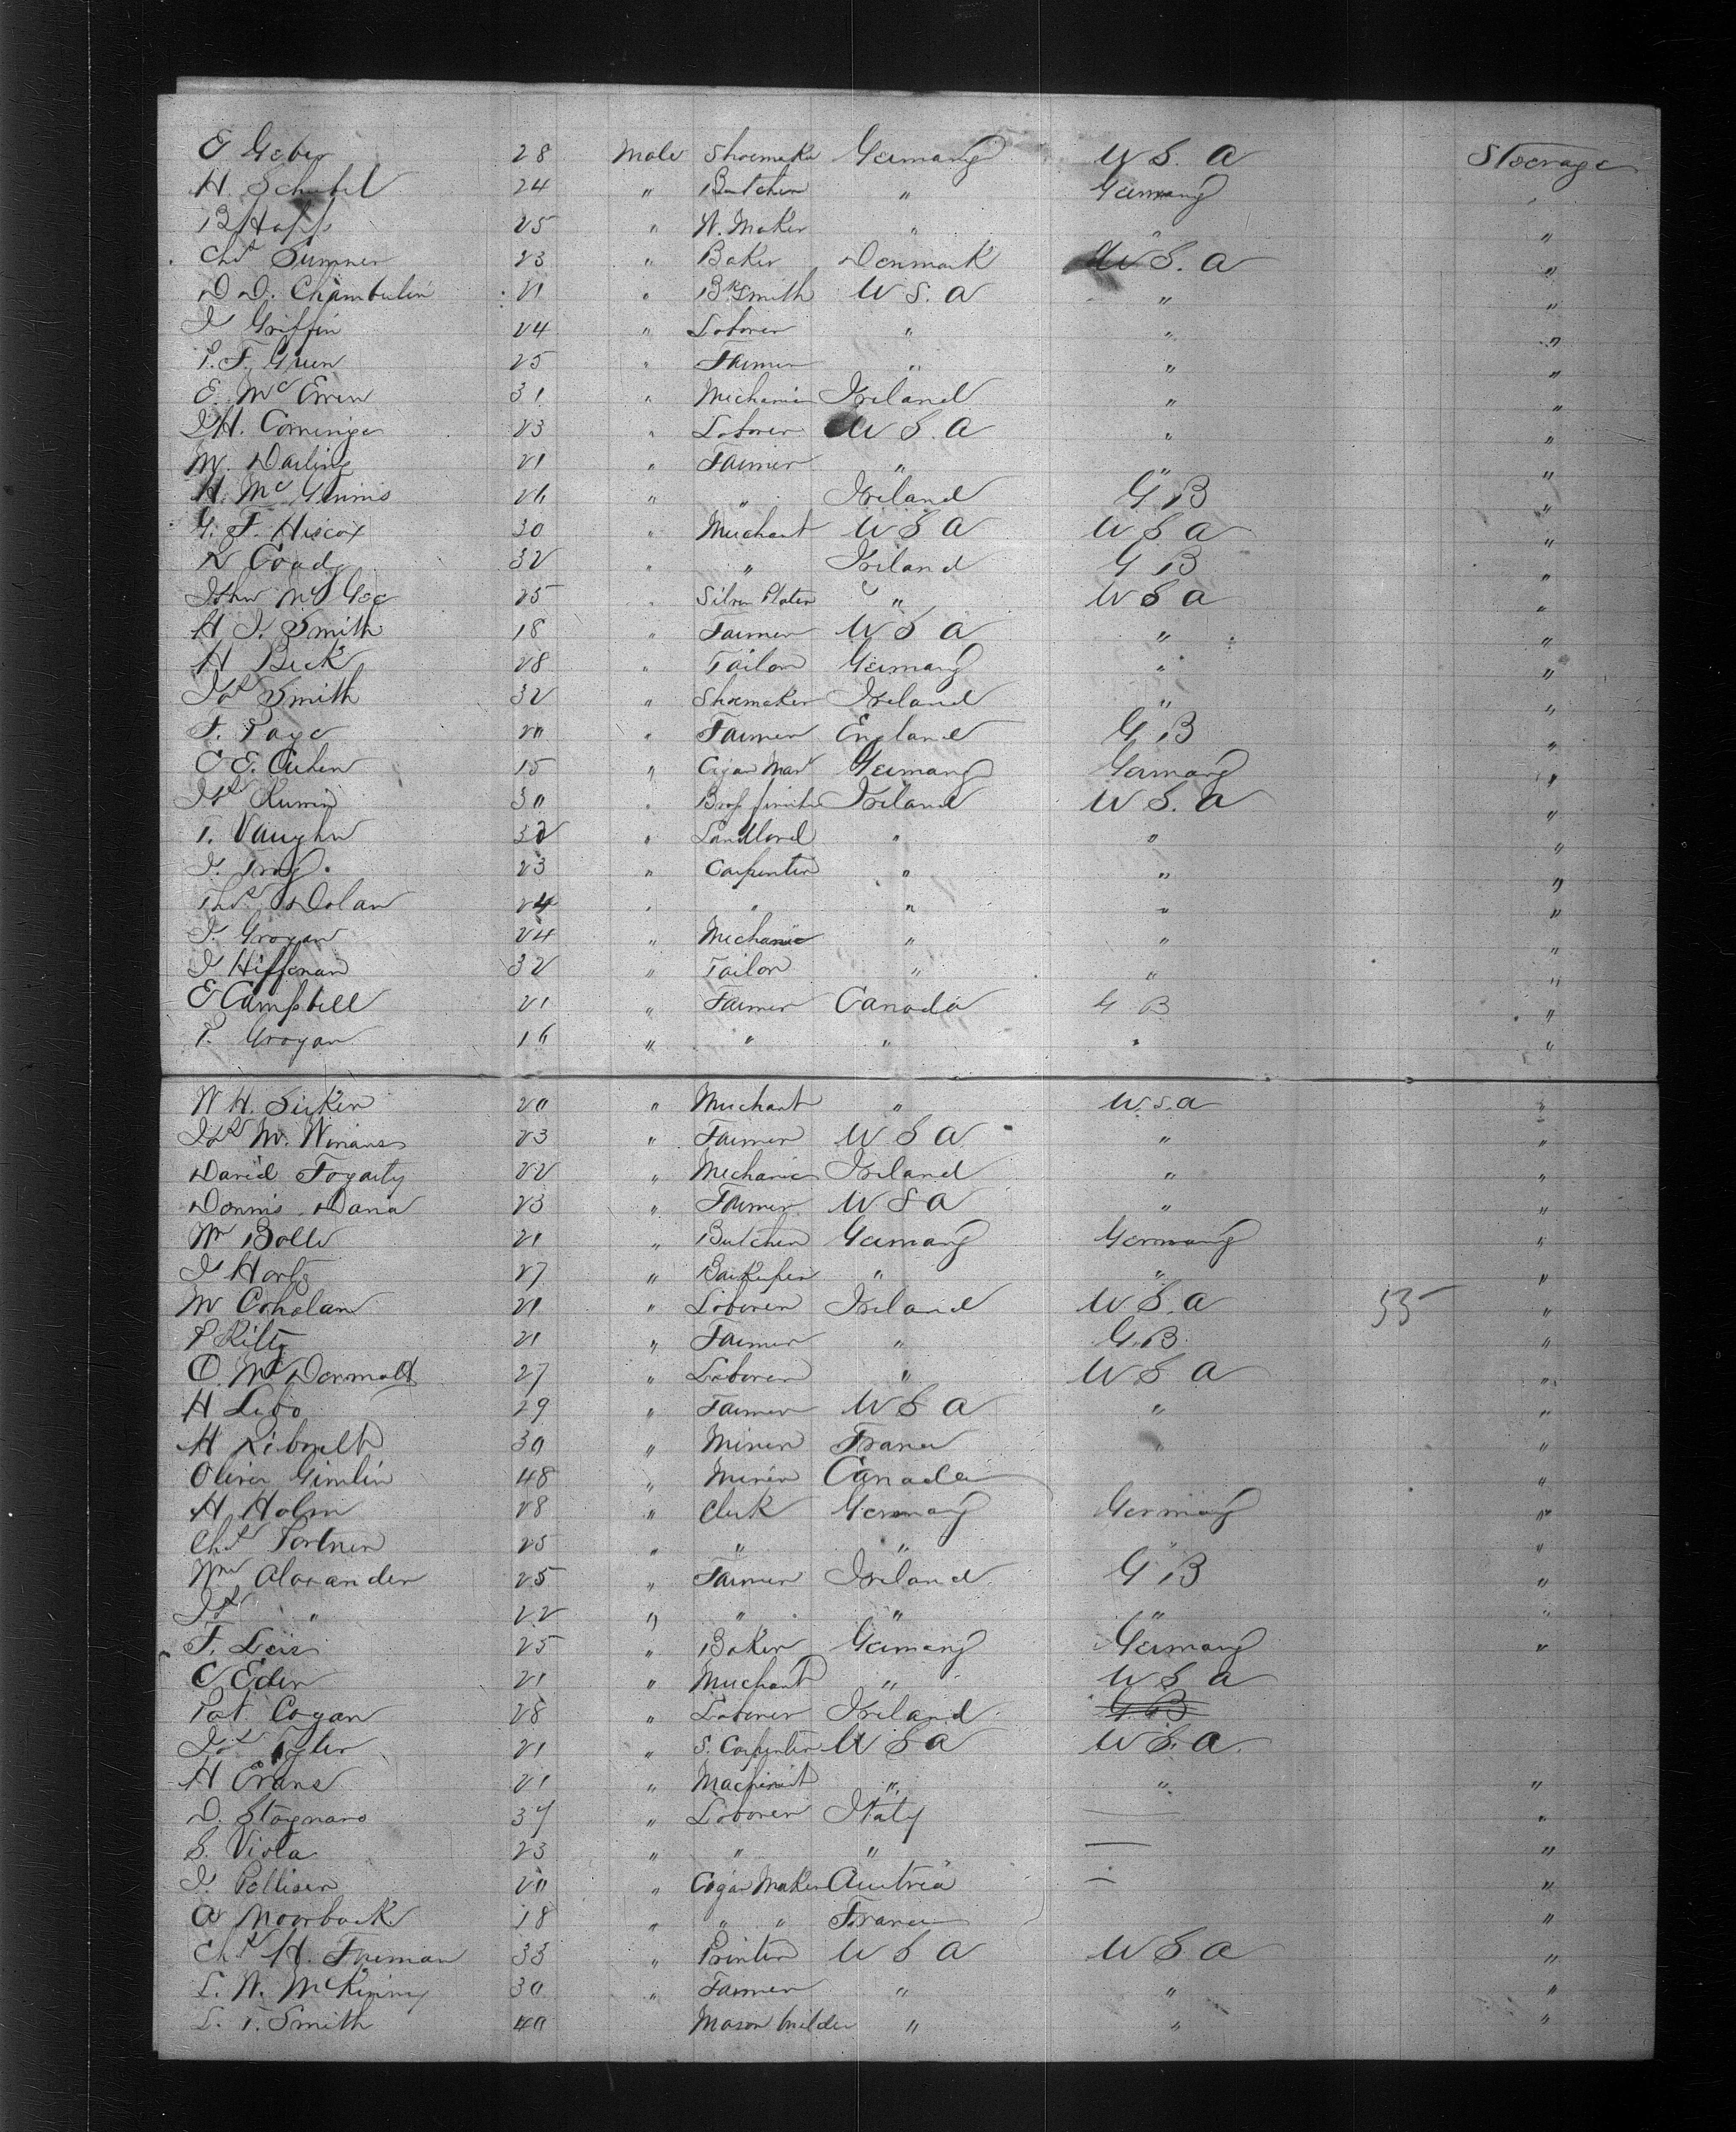 E Geber 28 Male Shoemaker Germany U S. A Steerage
H. Schubel 24 " Butcher " Germany "
B Hopp 25 " W. Maker " " "
Chs Sumner 23 " Baker Denmark U S. A "
D. D. Chamberlin 21 " Bksmith U S. A " "
J Griffin 24 " Laborer " " "
P. F. Green 25 " Farmer " " "
E. Mc Ewen 31 " Mechanic Ireland " "
J H. Comings 23 " Laborer U S. A " "
M. Darling 21 " Farmer " " "
H. Mc Ginnis 26 " " Ireland G B "
G. F. Hiscox 30 " Merchant U S A U S A "
N Coady 32 " " Ireland G B "
John Mc Gee 25 " Silver Plater " U S A "
H J. Smith 18 " Farmer U S A " "
H Beck 28 " Tailor Germany " "
Jas Smith 32 " Shoemaker Ireland " "
F. Page 20 " Farmer England G B "
C E. Cohen 15 " Cigar Mar Germany Germany "
30 " Brass finisher Ireland U S. A "
T. Vaughn 32 " Landlord " " "
J. 23 " Carpenter " " "
Ths Dolan 24 " " " " "
J. Grogan 24 " Mechanic " " "
J Hiffernan 32 " Tailor " " "
E Campbell 21 " Farmer Canada G B "
P. Grogan 16 " " " " "
W H. 20 " Merchant " U. S. A "
M. Winans 23 " Farmer U S A " "
David Fogarty 22 " Mechanic Ireland " "
Dennis Dana 23 " Farmer U S A " "
Wm Bolle 21 " Butcher Germany Germany "
J Hartz 27 " Barkeeper " " "
M Coholan 21 " Laborer Ireland U S. A 53 "
P Kilty 21 " Farmer " G. B. "
O. Mc Dermott 27 " Laborer " U S A "
H Libo 29 " Farmer U S A " "
H Riboult 30 " Miner France " "
Oliver Gimlin 48 " Miner Canada "
H Holm 28 " Clerk Germany Germany "
Chs Portner 25 " " " " "
Wm Alexander 25 " Farmer Ireland G B "
" 22 " " " " "
F. Leis 25 " Baker Germany Germany "
C Eden 21 " Merchant " U S A
Pat. Cogan 28 " Laborer Ireland G B
Tyler 21 " S. Carpenter U S A U S. A.
H Evans 21 " Machinist " " "
D. Stagnaro 37 " Laborer Italy — "
S. Viola 23 " " " — "
J. Polliser 20 " Cigar Maker Austria — "
A Moorback 18 " " " France "
Chs H. Freeman 33 " Printer U S A U S. A "
L. W. McKinny 30 " Farmer " " "
L. F. Smith 40 Mason builder " " "